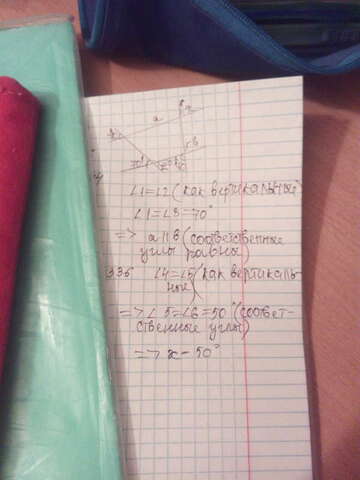 a
∠1=∠2 (как вертикальные)
∠1=∠3=70°
=> a || в (соответственные
углы равны)
∠4=∠5 (как вертикаль-
ные)
=> ∠5=∠6=50° (соответ-
ственные углы)
=> x - 50°